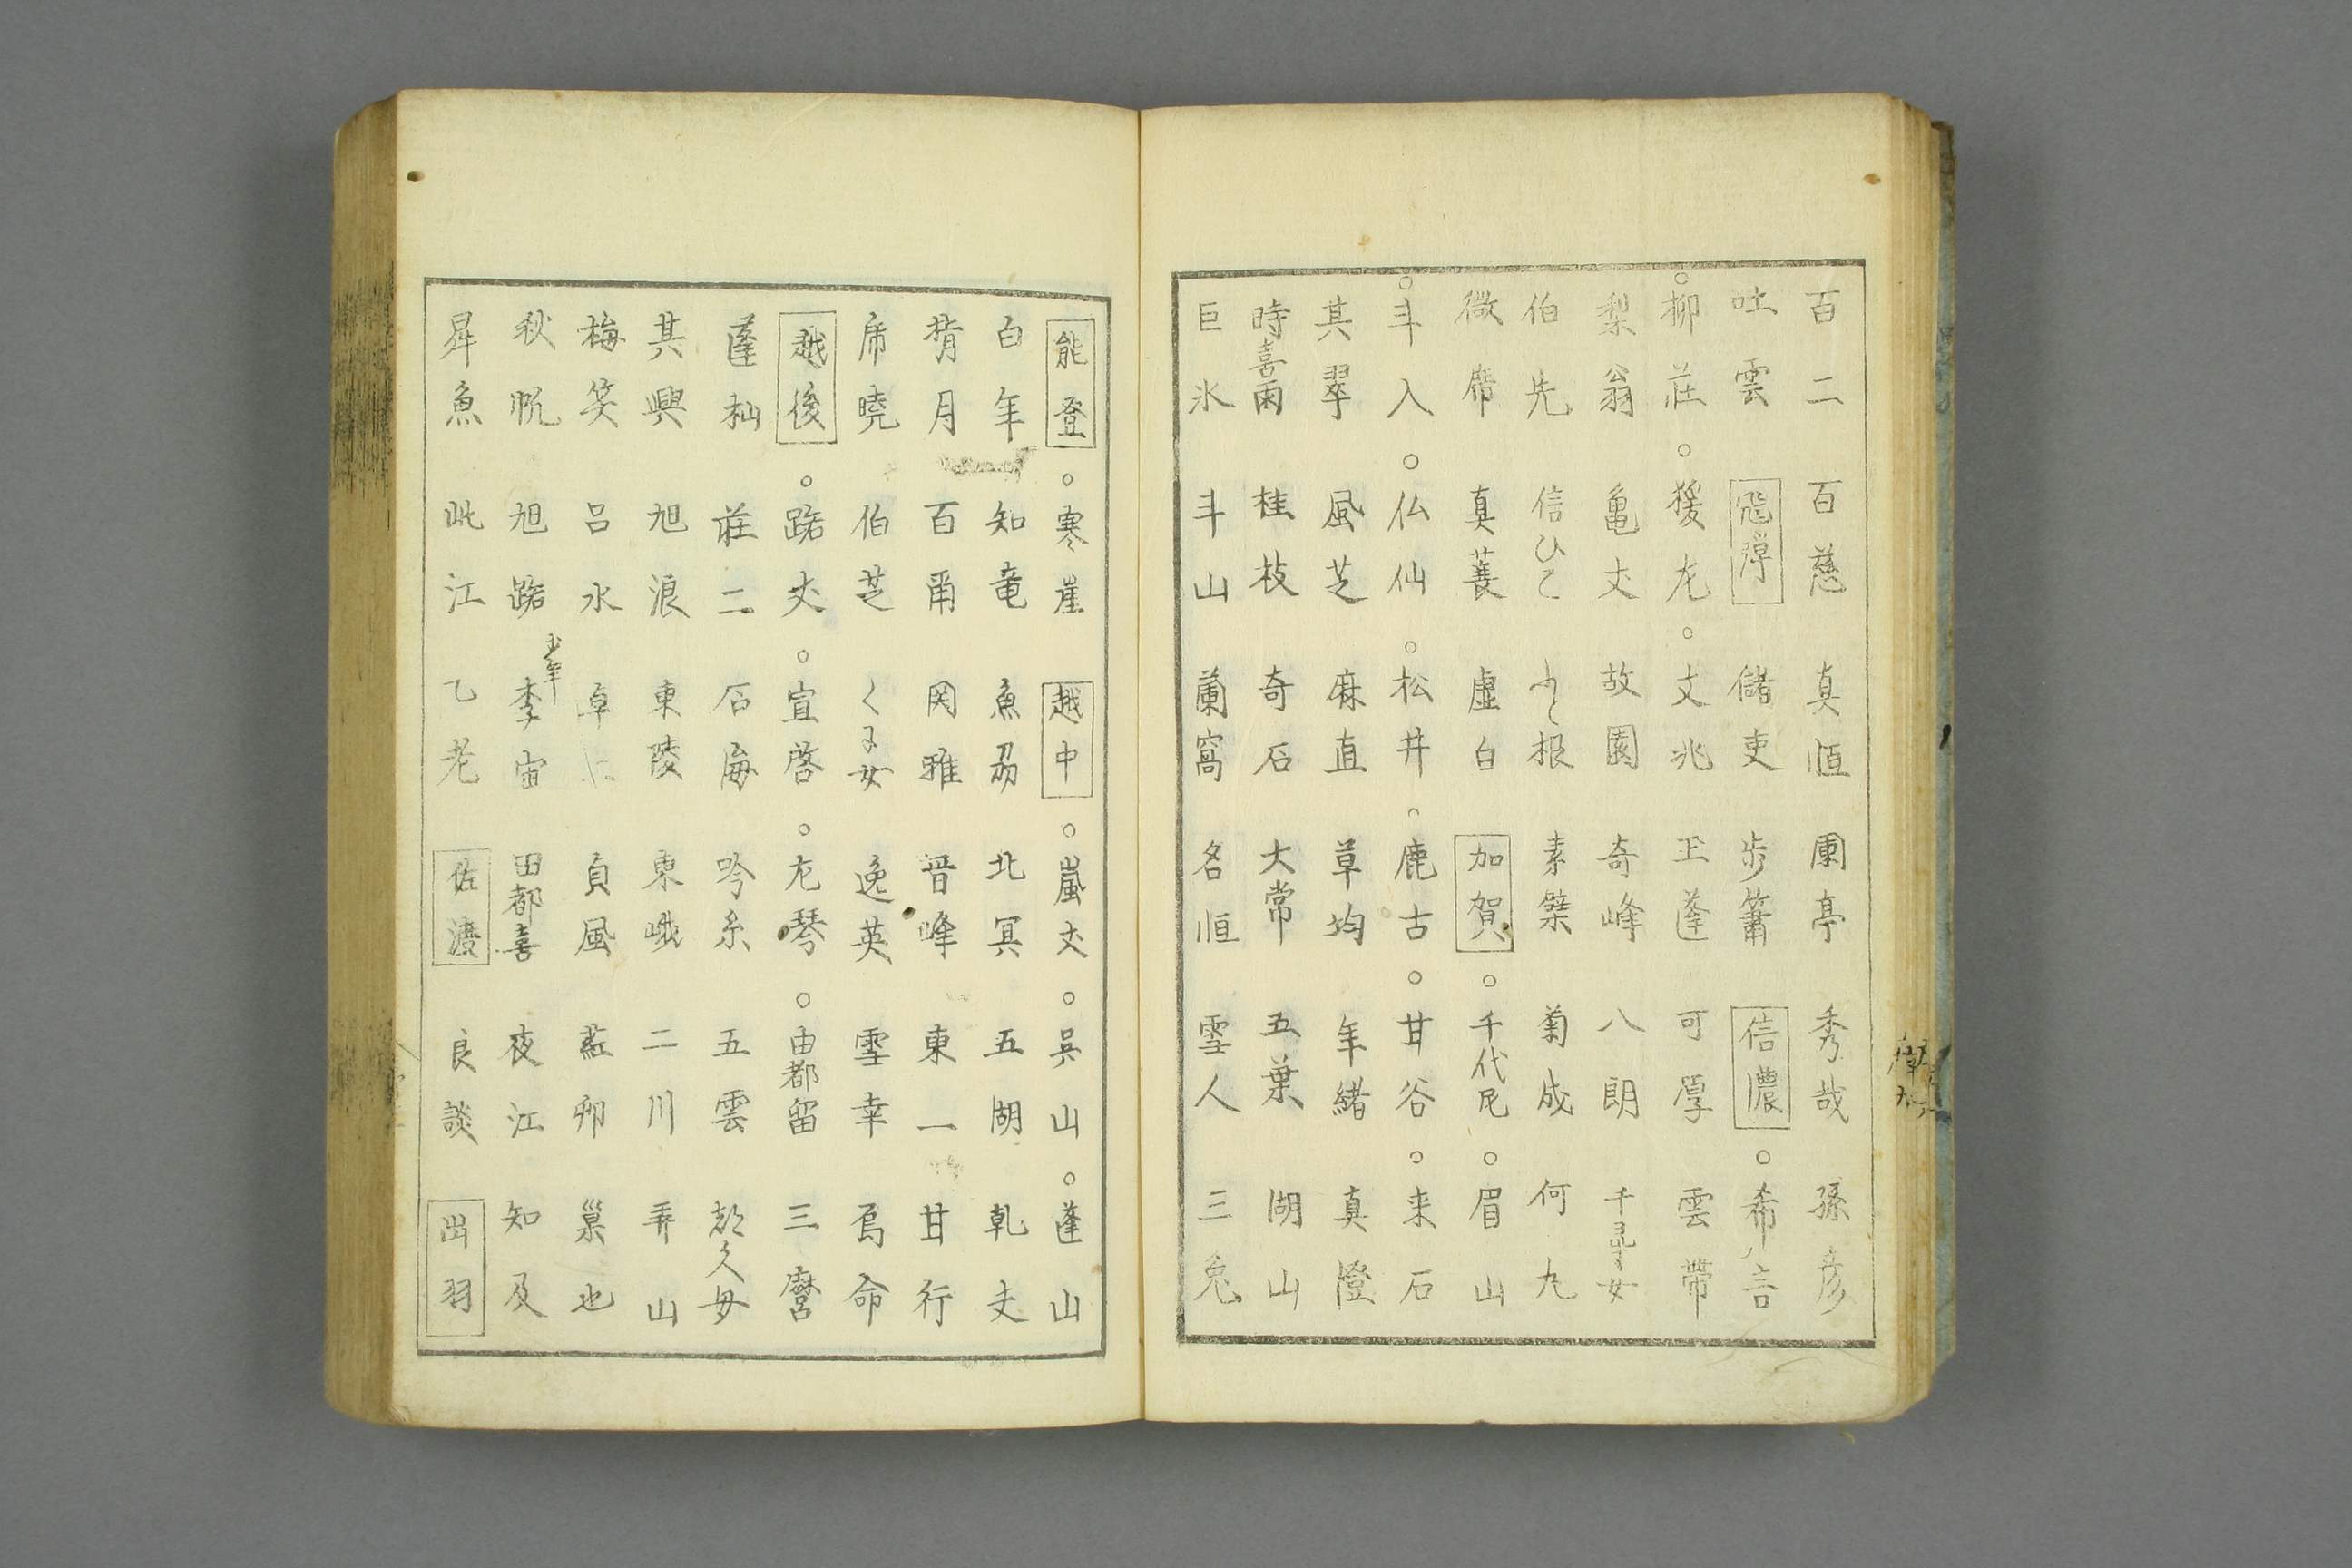 百二 百慈 真恒 蘭亭 秀哉 孫彦
吐雲 飛騨 儲吏 歩簫 信濃 。希言
。柳荘 。猨左 。丈兆 玉蓬 可厚 雲帯
梨翁 亀丈 故園 奇峰 八朗 女
伯先 信ひこ 根 素檗 菊成 何丸
微席 真蓑 虚白 加賀 。千代尼 。眉山
。斗入 。仏仙 。松井 。鹿古 。甘谷 。来石
其翠 風芝 麻直 草均 年緒 真澄
時喜雨 桂枝 奇石 大常 五葉 湖山
巨氷 斗山 蘭窩 名恒 雪人 三兎
能登 。寒崖 越中 。嵐丈 。呉山 。蓬山
白年 知竜 魚刕 北冥 五湖 乾丈
月 百爾 関雅 晋峰 東一 甘行
席暁 伯芝 女 逸英 雪幸 烏命
越後 。踞丈 。宜啓 。左琴 。由都留 三麿
蓬杣 荘二 石海 吟糸 五雲 久母
其興 旭浪 東陵 東峨 二川 弄山
梅笑 呂水 卓 貞風 茲卯 巣也
秋帆 旭踞 少年 李宙 田都喜 夜江 知及
犀魚 此江 乙老 佐渡 良談 出羽